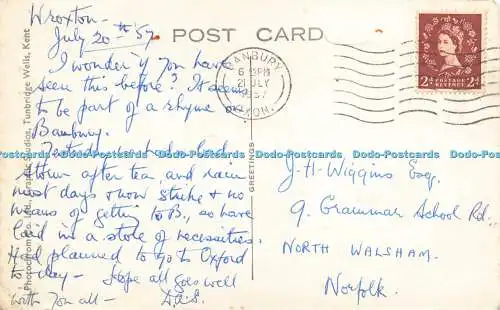 Wroxton -
July 20th '57
POST CARD
I wonder if you have
seen this before? It seems
to be part of a rhyme on
Banbury.
had
storm after tea, and rain
most days now strike & no
means of getting to B., so have
laid in a store of necessities.
Had planned to go to Oxford
to-day - Hope all goes well
with you all - D.A.S.
Photochrom Co. Ltd., Graphic Studios, Tunbridge Wells, Kent
GREETINGS
BANBURY
6 PM
21 JLY
1957
OXON.
2d POSTAGE REVENUE 2d
J. H. Wiggins Esq.
9. Grammar School Rd.,
NORTH WALSHAM.
Norfolk.
Dodo-Postcards Dodo-Postcards Dodo-Postcards Dodo-Postcards Dodo-Postcards Dodo-Postcards